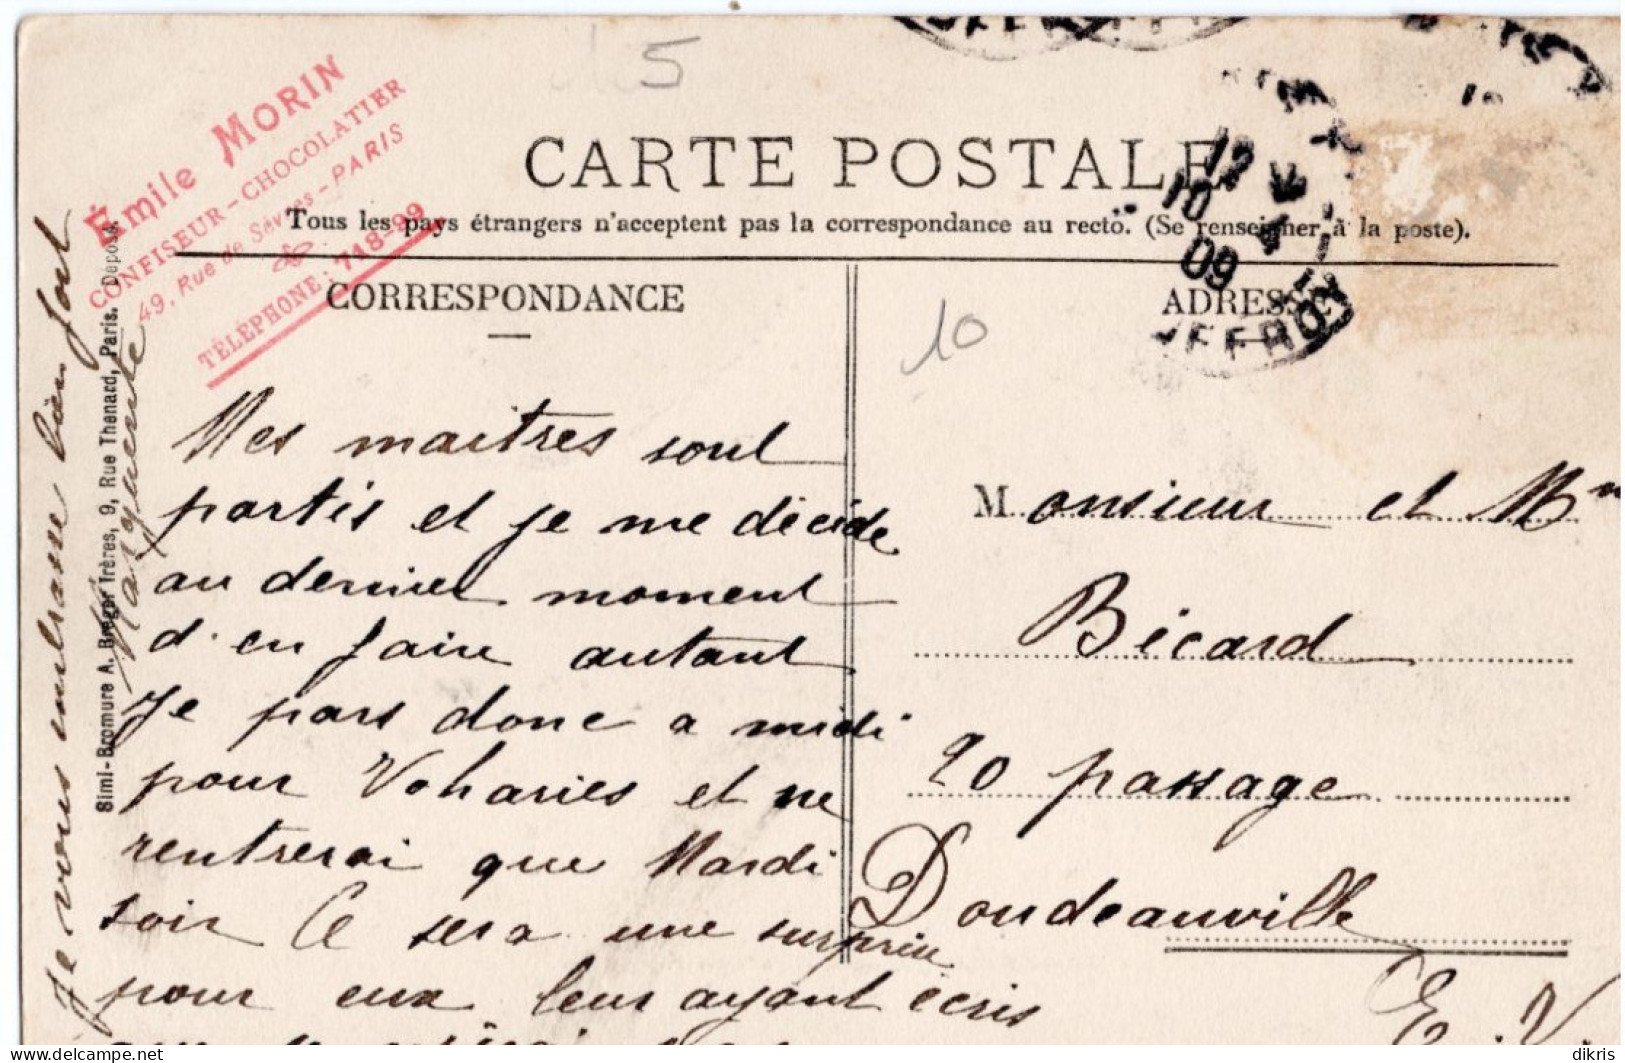 5
Émile MORIN
CONFISEUR-CHOCOLATIER
49, Rue de Sèvres-PARIS
TÉLÉPHONE: 718-99
CARTE POSTALE
Tous les pays étrangers n'acceptent pas la correspondance au recto. (Se renseigner à la poste).
CORRESPONDANCE
ADRESSE
12
10
4
09
10
Mes maitres sont
partis et je me décide
au dernier moment
d'en faire autant
Je pars donc a midi
pour Voharies et ne
rentrerai que Mardi
soir Ce sera une surprise
pour eux leur ayant écris
que je
Je vous embrasse bien fort
Marguerite
Simi-Bromure A. Breger frères, 9, Rue Thenard, Paris. Déposé.
Monsieur et Mm
Bécard
20 passage
Doudeauville
E. V.
dikris